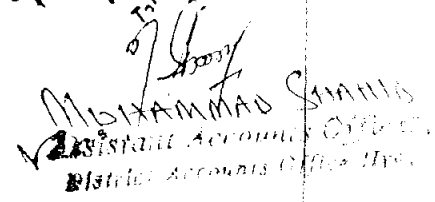 MUHAMMAD SHAHID
Assistant Accounts Officer
District Accounts Office Hyd.